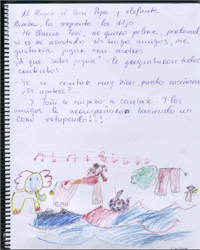 al Hipo, al Oso Pepe y elefante
Bimba, la serpiente les dijo:
- Me llamo Toñi, no quiero pelear, perdonad
si os he asustado. No tengo amigos, me
gustaría jugar con vosotros.
- ¿A qué sabes jugar? - le preguntaron todos
contentos.
- Yo sé cantar muy bien, puedo enseñaros
¿os gusta?
Y Toñi se empezó a cantar. Y los
amigos le acompañaron haciendo un
coro estupendo!!!